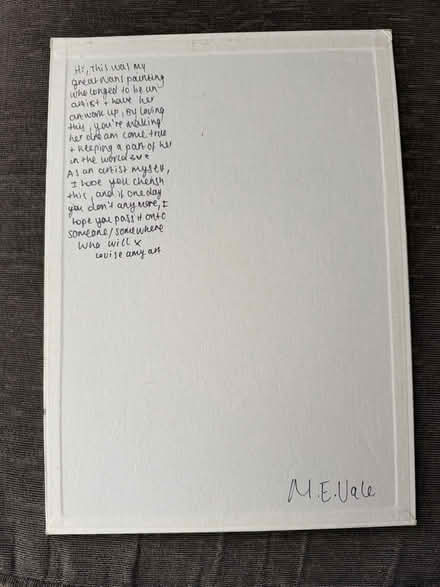 Hi, this was my
great nans painting
who longed to be an
artist + have her
artwork up, By loving
this, you're making
her dream come true
+ keeping a part of her
in the world
As an artist myself,
I hope you cherish
this, and if one day
you don't anymore, I
hope you pass it onto
someone/somewhere
who will x
Louise amy art
M.E.Vale